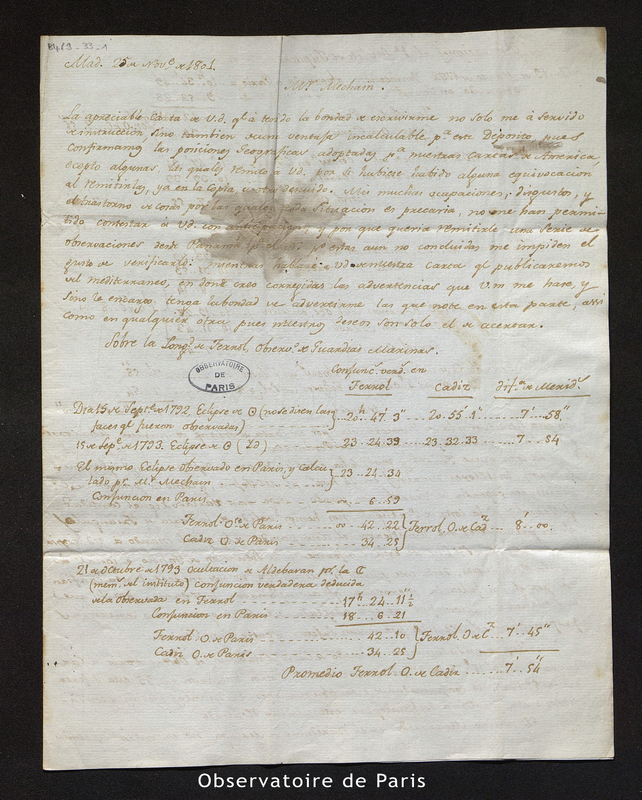 B469-33-1
Mad. 25 de Nov.e de 1801.
Mr. Mechain.
La apreciable Carta de Vd. ql. á tenido la bondad de escrivirme no solo me á servido
de instruccion sino tambien de una ventaja incalculable pa. este Deposito, pues
confirmamos las posiciones Geograficas, adoptadas pa. nuestras Cartas de America,
ecepto algunas, las quales remito á Vd. por si hubiese habido alguna equivocacion
al remitirlas, ya en la Copia u otro descuido. Mis muchas ocupaciones, disgustos, y
el trastorno de cosas por las quales situacion es precaria, no me han permi-
tido contestar á Vd. con y por que queria remitirle una Serie de
observaciones desde Panamá pr. estas aun no concluidas me impiden el
gusto de verificarlo: hallará Vd. nuestra Carta ql. publicaremos
del mediterraneo, en donde creo corregidas las advertencias que Vm me hace, y
sino le encargo tenga la bondad de advertirme las que note en esta parte, assi
como en qualquier otra, pues nuestros deseos son solo el de acertar.
Sobre la Longd. de Ferrol, Observo. de Guardias Marinas.
OBSERVATOIRE DE PARIS
Conjunc. verd. en
Ferrol Cadiz dif.a de Merid.s
Dia 15 de Septre. de 1792. Eclipse de ☉ (no se dicen las
fases ql. fueron observadas) 20h 47' 3" 20. 55. 1" 7' 58"
15 de Sepe. de 1793. Eclipse de ☉ (Id) 23 - 24 - 39 23. 32. 33 7 .. 54
El mismo Eclipse observado en Paris, y Calcu
lado pr. Mr. Mechain 23 .. 24 .. 34
Conjuncion en Paris 6 .. 59
Ferrol O. de Paris 00 .. 42 .. 22 Ferrol O. de Cadz. 8' 00
Cadiz O. de Paris 34 .. 25
21 de Octubre de 1793 Ocultacion de Aldebaran pr. la ☾
(mem.s del instituto) Conjuncion verdadera deducida
de la Observada en Ferrol 17h 24' 11"½
Conjuncion en Paris 18 .. 6 .. 21
Ferrol O. de Paris 42 .. 10 Ferrol O. de Cz. 7' 45"
Cadiz O. de Paris 34 .. 25
Promedio Ferrol O. de Cadiz 7' 54"
Observatoire de Paris